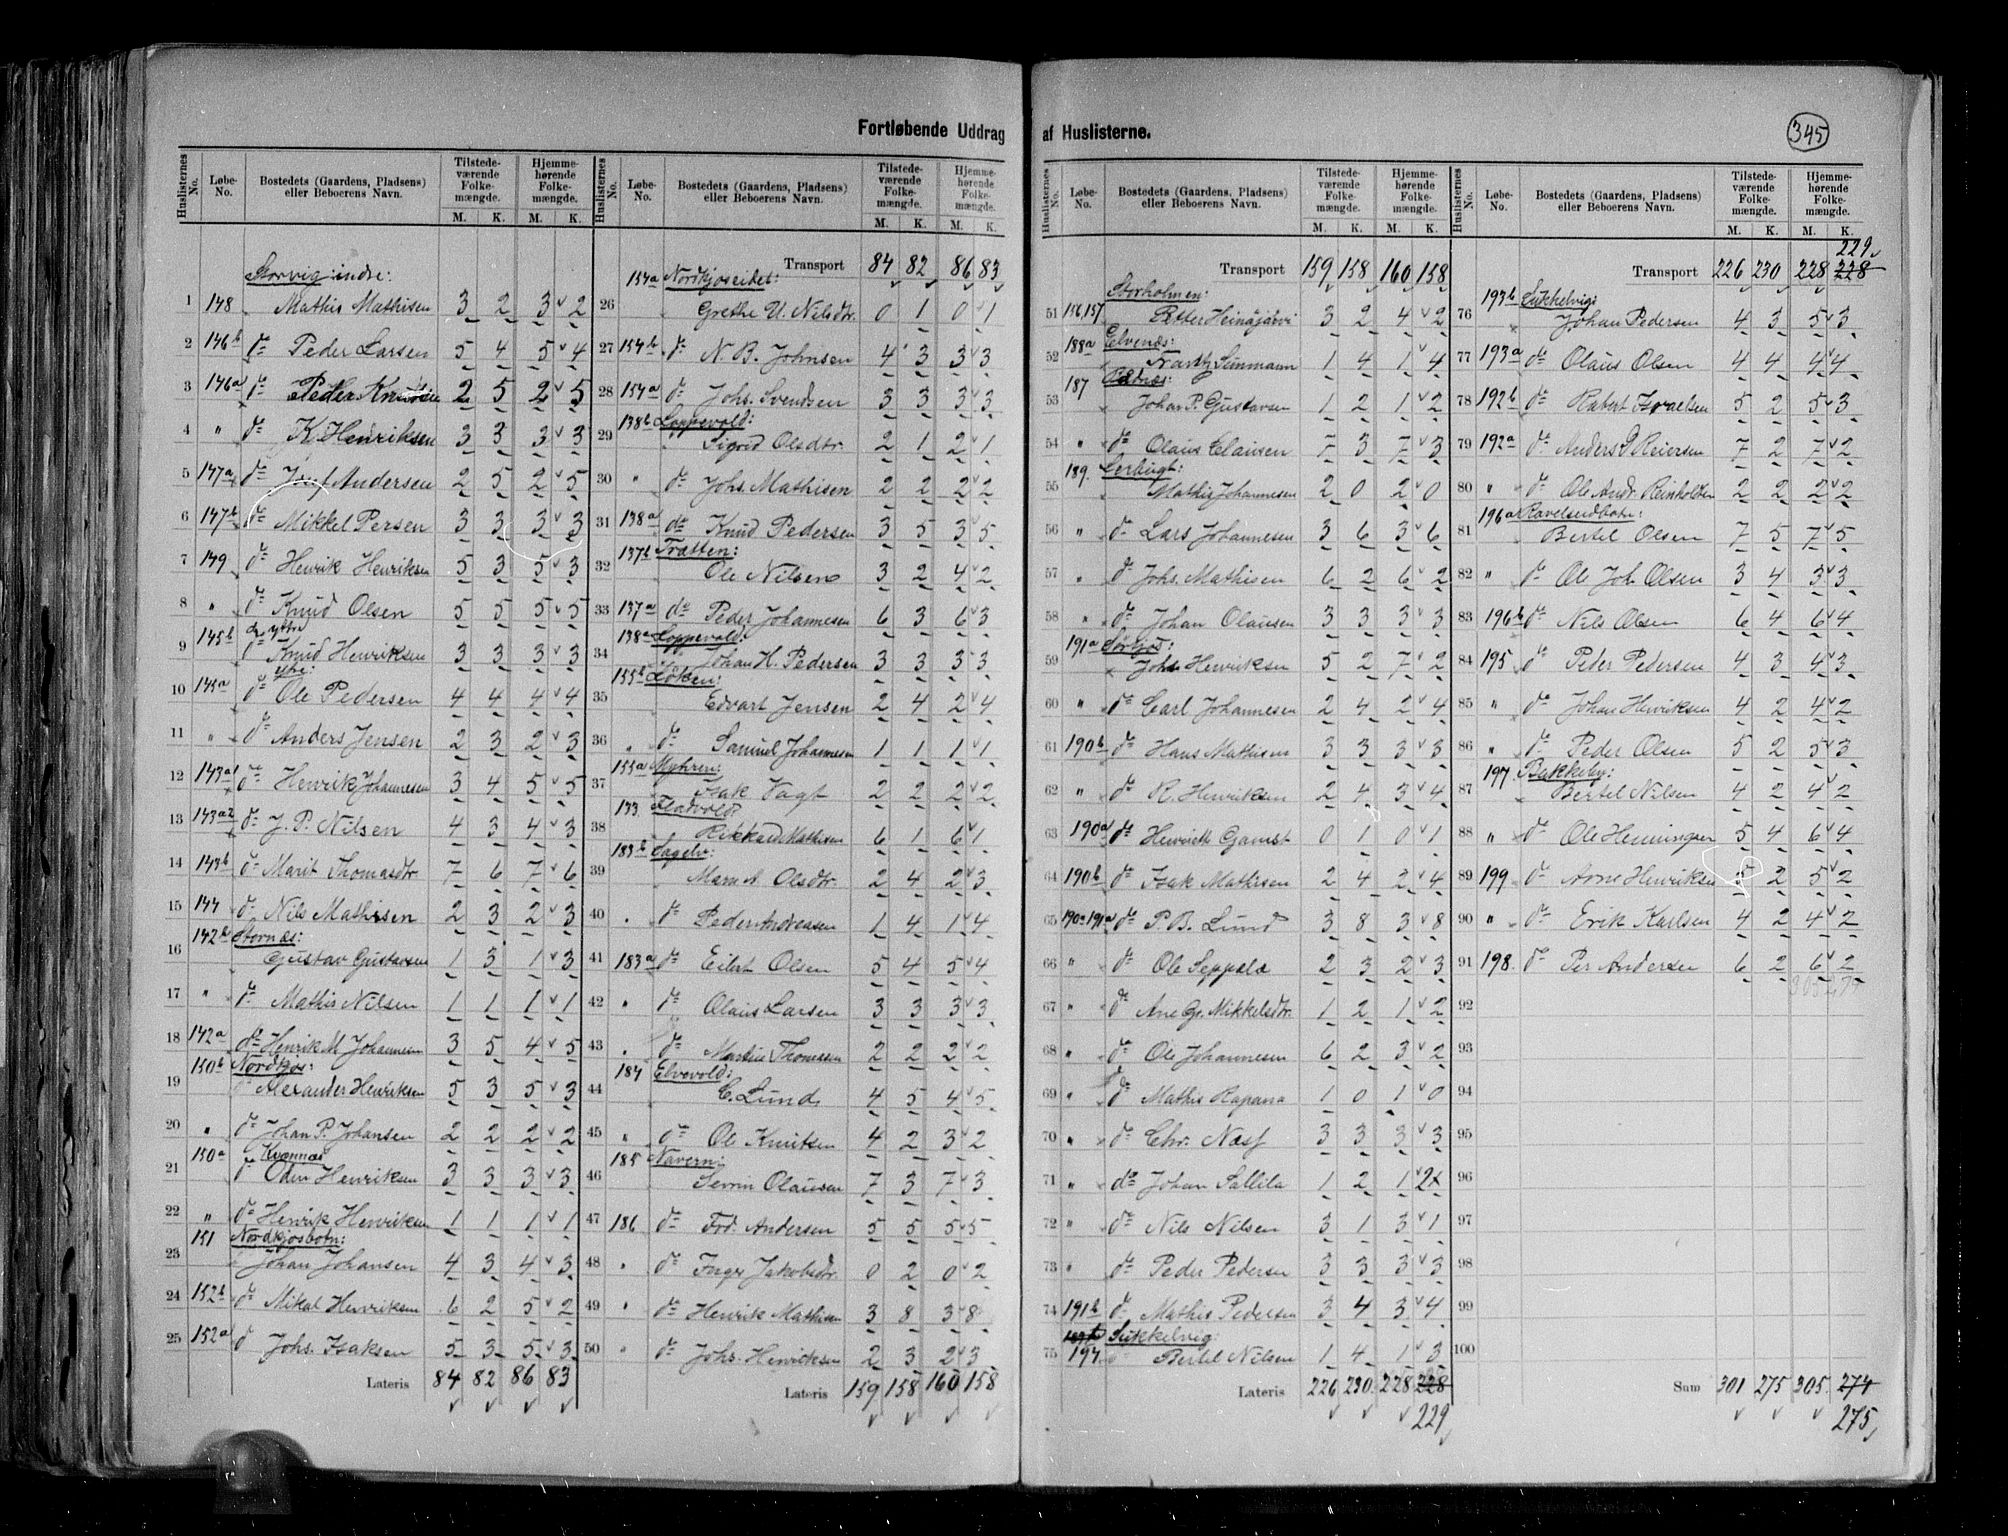 Fortløbende Uddrag af Huslisterne.
345
Huslisternes No. Løbe-No. Bostedets (Gaardens, Pladsens) eller Beboerens Navn. Tilstedeværende Folkemængde. M. K. Hjemmehørende Folkemængde. M. K.
Storvig indre:
1 148 Mathis Mathisen 3 2 3 2
2 146b do Peder Larsen 5 4 5 4
3 146a do Peder Knudsen 2 5 2 5
4 " do K. Henriksen 3 3 3 3
5 147a do Josef Andersen 2 5 2 5
6 147b do Mikkel Persen 3 3 3 3
7 149 do Henrik Henriksen 5 3 5 3
8 " do Knud Olsen 5 5 5 5
do ytre
9 145b do Knud Henriksen 3 3 3 3
10 145a do Ole Pedersen 4 4 4 4
11 " do Anders Jensen 2 3 2 3
12 143a1 do Henrik Johannesen 3 4 5 5
13 143a2 do J. P. Nilsen 4 3 4 3
14 143b do Marit Thomasdtr 7 6 7 6
15 144 do Nils Mathisen 2 3 2 3
142b Stornæs:
16 Gustav Gustavsen 1 3 1 3
17 " do Mathis Nilsen 1 1 1 1
18 142a do Henrik M Johannesen 3 5 4 5
150b Nordkjos:
19 Alexander Henriksen 5 3 5 3
20 " do Johan P. Johansen 2 2 2 2
150a Kvannæs
21 do Oden Henriksen 3 3 3 3
22 " do Henrik Henriksen 1 1 1 1
151 Nordkjosbotn:
23 Johan Johansen 4 3 4 3
24 152b do Mikal Henriksen 6 2 5 2
25 152a do Johs. Isaksen 5 3 5 3
Lateris 84 82 86 83
Huslisternes No. Løbe-No. Bostedets (Gaardens, Pladsens) eller Beboerens Navn. Tilstedeværende Folkemængde. M. K. Hjemmehørende Folkemængde. M. K.
Transport 84 82 86 83
154a Nordkjoseidet:
26 Grethe U. Nilsdtr. 0 1 0 1
27 154b do N. B. Johnsen 4 3 3 3
28 154a do Johs. Svendsen 3 3 3 3
138b Loppevold:
29 Sigrid Olsdtr 2 1 2 1
30 " do Johs. Mathisen 2 2 2 2
31 138a do Knud Pedersen 3 5 3 5
137b Trætten:
32 Ole Nilsen 3 2 4 2
33 137a do Peder Johannesen 6 3 6 3
138a Loppevold:
34 Johan H. Pedersen 3 3 3 3
155b Løken:
35 Edvart Jensen 2 4 2 4
36 " do Samuel Johannesen 1 1 1 1
155a Myhren:
37 Isak Vagt 2 2 2 2
133
38 Rikkard Mathisen 6 1 6 1
183b Sagelv:
39 Maren A. Olsdtr 2 4 2 3
40 " do Peder Andreasen 1 4 1 4
41 183a do Eilert Olsen 5 4 5 4
42 " do Olaus Larsen 3 3 3 3
43 " do Martin Thomesen 2 2 2 2
184 Elvevold:
44 C. Lund 4 5 4 5
45 " do Ole Knutsen 4 2 3 2
185 Navern:
46 Sevrin Olausen 7 3 7 3
47 186 do Frd. Andersen 5 5 5 5
48 " do Inger Jakobsdtr 0 2 0 2
49 " do Henrik Mathisen 3 8 3 8
50 " do Johs. Henriksen 2 3 2 3
Lateris 159 158 160 158
Huslisternes No. Løbe-No. Bostedets (Gaardens, Pladsens) eller Beboerens Navn. Tilstedeværende Folkemængde. M. K. Hjemmehørende Folkemængde. M. K.
Transport 159 158 160 158
Storholmen:
51 156,157 Petter Heinäjärvi 3 2 4 2
188a Elvenæs:
52 Frantz Sunmann 1 4 1 4
187
53 Johan P. Gustavsen 1 2 1 2
54 " do Olaus Clausen 7 3 7 3
189. Lerbugt:
55 Mathis Johannesen 2 0 2 0
56 " do Lars Johannesen 3 6 3 6
57 " do Johs. Mathisen 6 2 6 2
58 " do Johan Olausen 3 3 3 3
191a Sørkjos:
59 Johs Henriksen 5 2 7 2
60 " do Carl Johannesen 2 4 2 4
61 190b do Hans Mathisen 3 3 3 3
62 " do R. Henriksen 2 4 3 4
63 190a do Henrich Gjæmst 0 1 0 1
64 190b do Isak Mathisen 2 4 2 4
65 190a 191a do P. B. Lund 3 8 3 8
66 " do Ole Seppälä 2 3 2 3
67 " do Ane Gr. Mikkelsdtr. 1 2 1 2
68 " do Ole Johannesen 6 2 3 2
69 " do Mathis Rapana 1 0 1 0
70 " do Chr. Næss 3 3 3 3
71 " do Johan Sallila 1 2 1 2x
72 " do Nils Nilsen 3 1 3 1
73 " do Peder Pedersen 3 3 3 3
74 191b do Mathis Pedersen 3 4 3 4
Sukkelvig:
75 194 Bertel Nilsen 1 4 1 3
Lateris 226 230 228 228
229
Huslisternes No. Løbe-No. Bostedets (Gaardens, Pladsens) eller Beboerens Navn. Tilstedeværende Folkemængde. M. K. Hjemmehørende Folkemængde. M. K.
229
Transport 226 230 228 228
193b Sukkelvig:
76 Johan Pedersen 4 3 5 3
77 193a do Olaus Olsen 4 4 4 4
78 192b do Rabert Israelsen 5 2 5 3
79 192a do Anders P Reiersen 7 2 7 2
80 " do Ole Andr. Reinholtsen 2 2 2 2
196a Ravelseidbotn:
81 Bertel Olsen 7 5 7 5
82 " do Ole Joh. Olsen 3 4 3 3
83 196b do Nils Olsen 6 4 6 4
84 195 do Peder Pedersen 4 3 4 3
85 " do Johan Henriksen 4 2 4 2
86 " do Peder Olsen 5 2 5 3
197. Bakkeby:
87 Bertel Nilsen 4 2 4 2
88 " do Ole Henningsen 5 4 6 4
89 199 do Arne Henriksen 5 2 5 2
90 " do Erik Karlsen 4 2 4 2
91 198. do Per Andersen 6 2 6 2
92
93
94
95
96
97
98
99
100
Sum 301 275 305 274
275